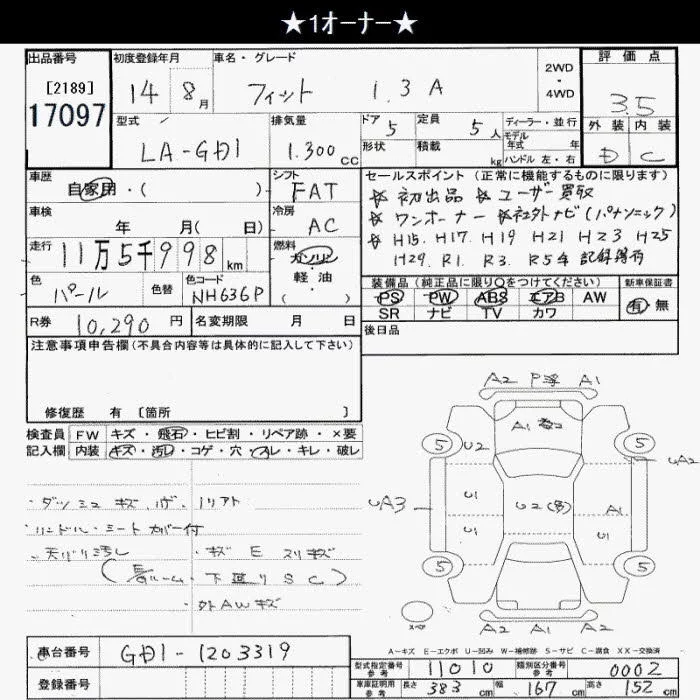 ★1オーナー★
出品番号 初度登録年月 車名・グレード 評価点
[2189] 14年 8月 フィット 1.3 A 2WD・4WD 3.5
17097
型式 排気量 ドア 定員 ディーラー・並行 外装 内装
LA-GD1 1.300cc 5 5人 モデル年式 年 D C
形状 積載 kg ハンドル 左・右
車歴 シフト セールスポイント (正常に機能するものに限ります)
自家用・( ) FAT ☆初出品 ☆ユーザー買取
車検 冷房 ☆ワンオーナー ☆社外ナビ(パナソニック)
年 月( 日) AC ☆H15. H17. H19 H21 H23 H25
走行 燃料 H29. R1. R3. R5年 記録簿有
11万5千998km ガソリン
軽油
( )
色 色替 色コード 装備品 (純正品に限り○をつけてください) 新車保証書
パール NH636P PS PW ABS エアB AW 有 無
SR ナビ TV カワ
R券 10,290円 名変期限 月 日 後日品
注意事項申告欄(不具合内容等は具体的に記入して下さい)
修復歴 有 [箇所 ]
検査員 FW キズ・飛石・ヒビ割・リペア跡・×要
記入欄 内装 キズ・汚レ・コゲ・穴・スレ・キレ・破レ
A2 P浮 A1
A1
5 U2 5
UA2
UA3 U1 U2 A1
U1
5 5
スペア
A2 A1 A2
・ダッシュ キズ
・ハンドル・シート カバー付
・天バリ汚レ ・キズ E スリキズ
下廻りSC)
・外AWキズ
A-キズ E-エクボ U-凹み W-補修跡 S-サビ C-腐食 XX-交換済
車台番号 GD1-1203319
登録番号
型式指定番号 参考 11010 類別区分番号 参考 0002
車庫証明用 参考 長さ 383cm 幅 167cm 高さ 152cm